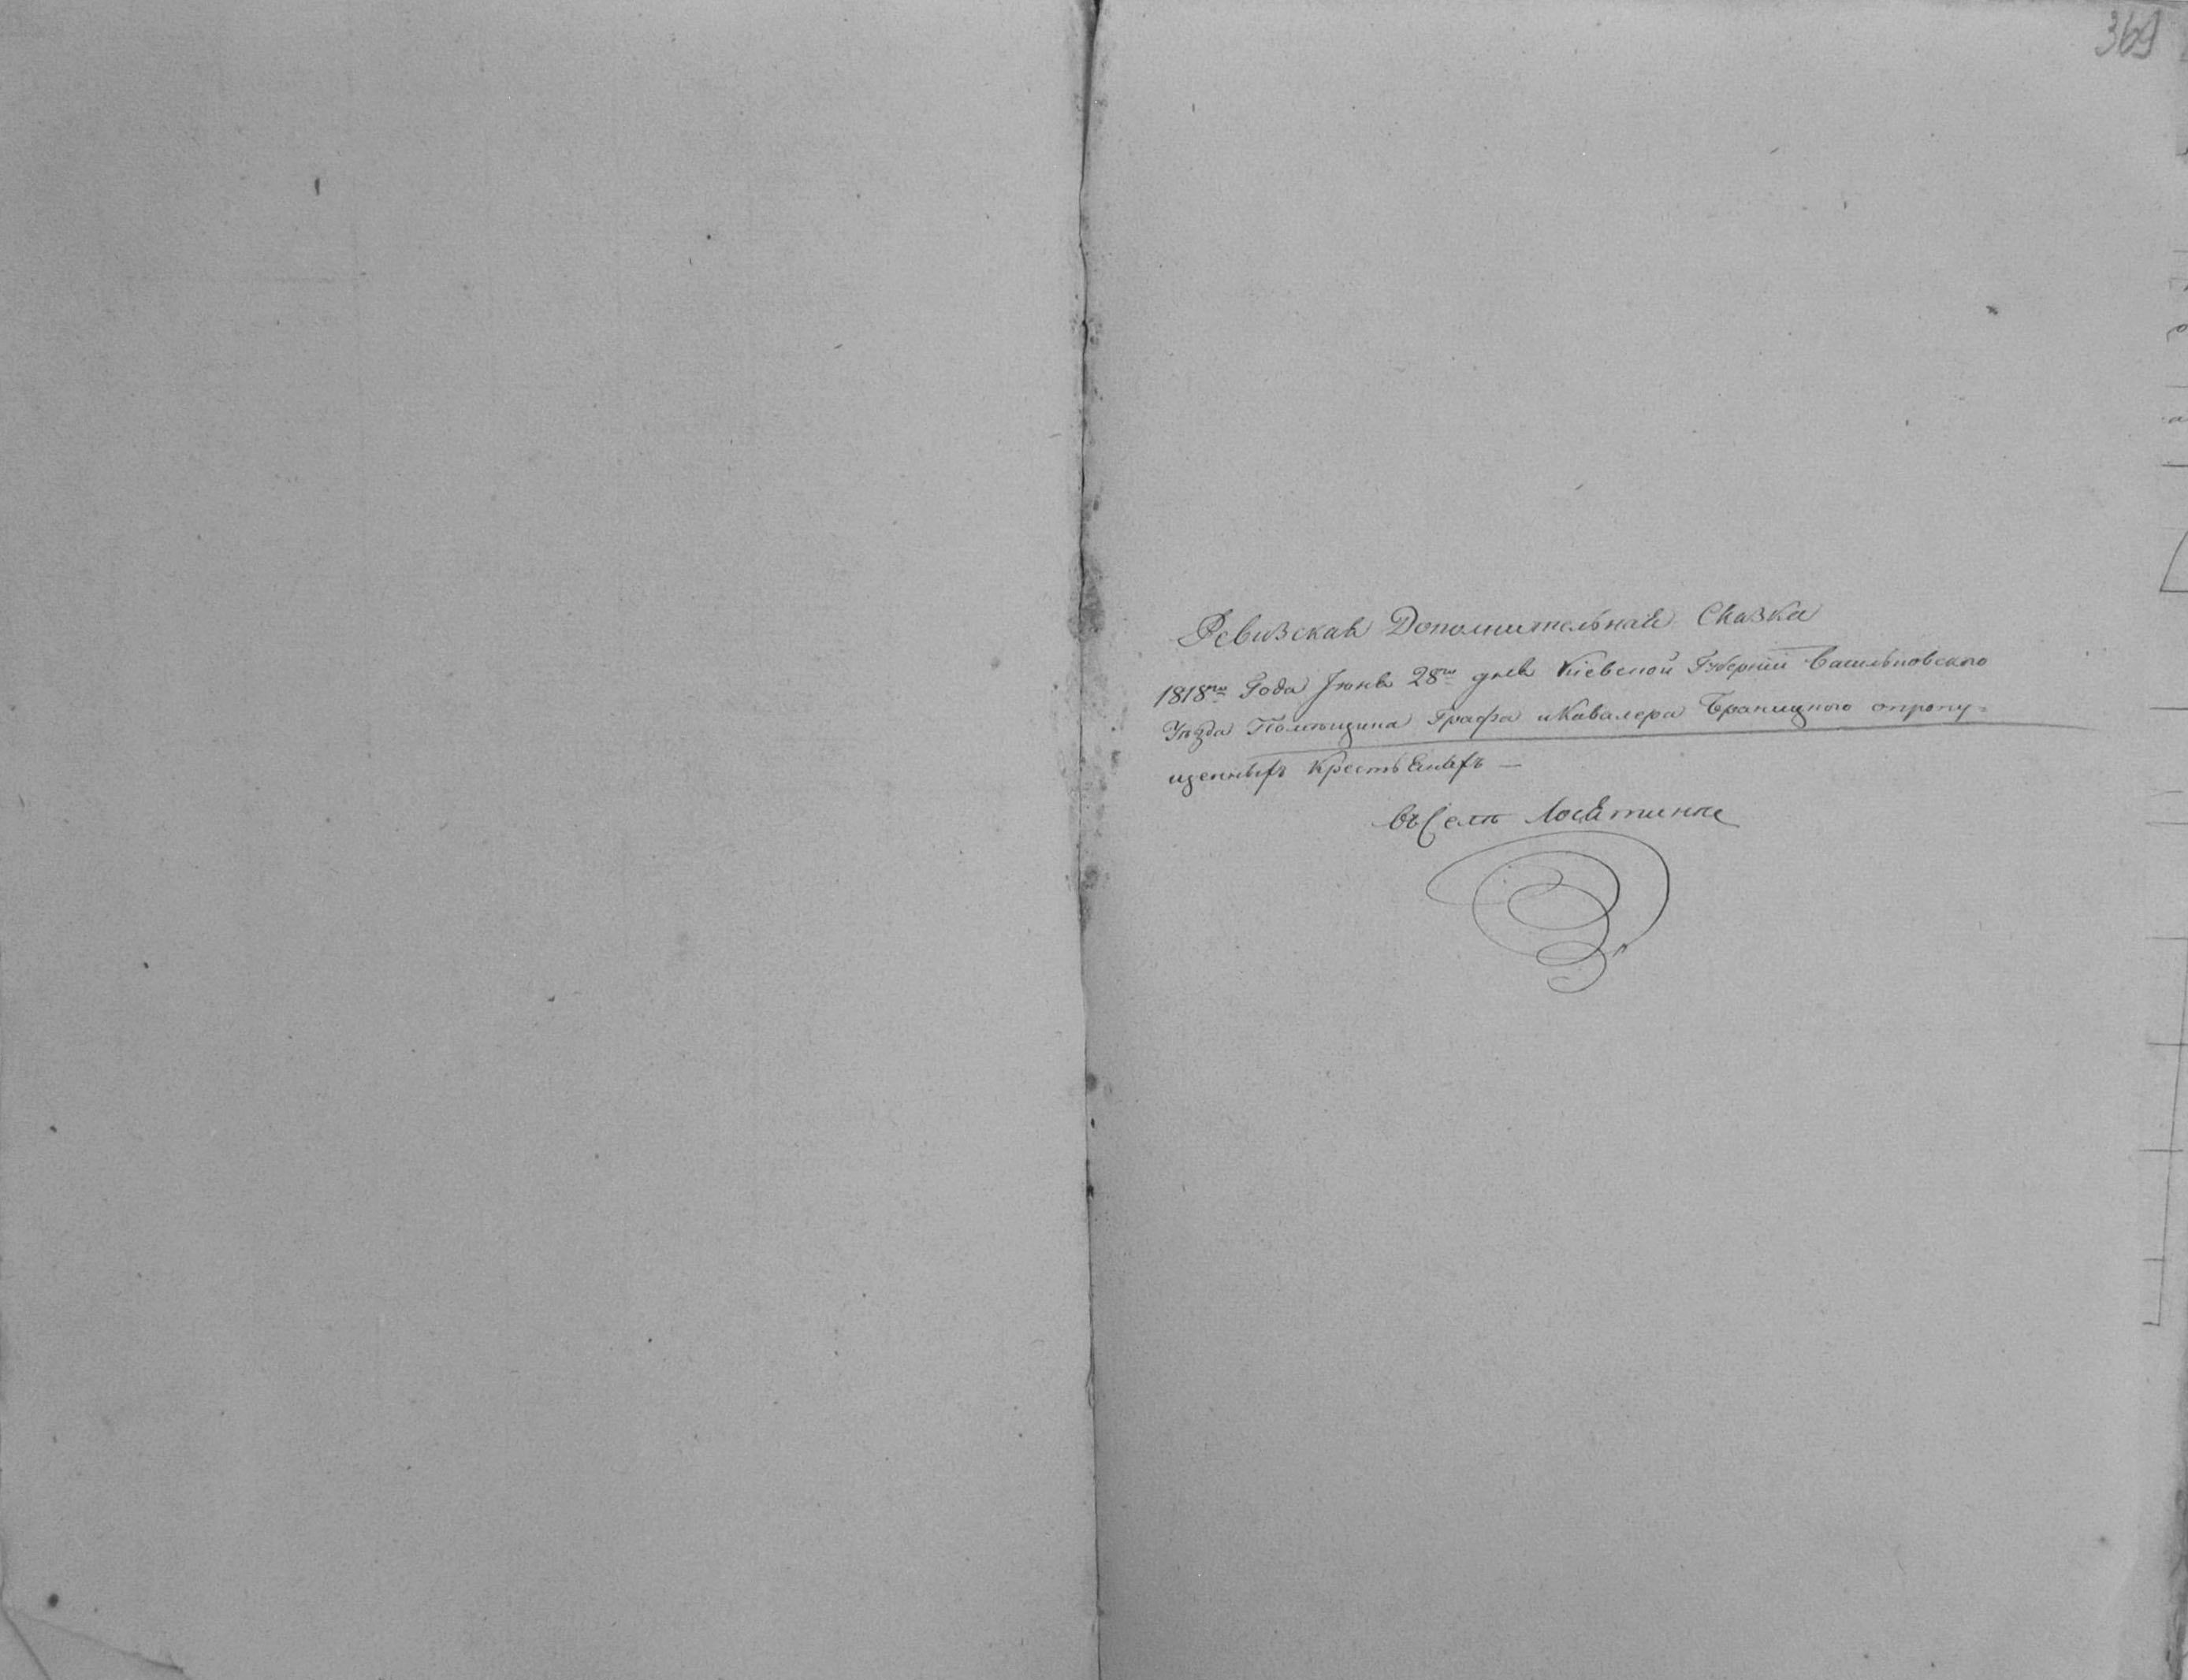 369
Ревизская Дополнительная Сказка
1818го Года Июня 28го дня Кіевской Губерніи Васильковского
Уѣзда Помѣщика Графа и Кавалера Браницкого о пропу=
щенныхъ Крестьянахъ —
въ Селѣ Лосятинке